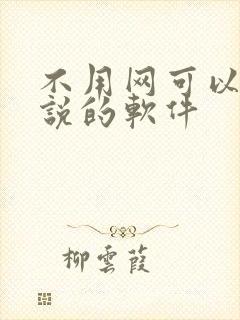 不用网可以
説的軟件
柳雲葭